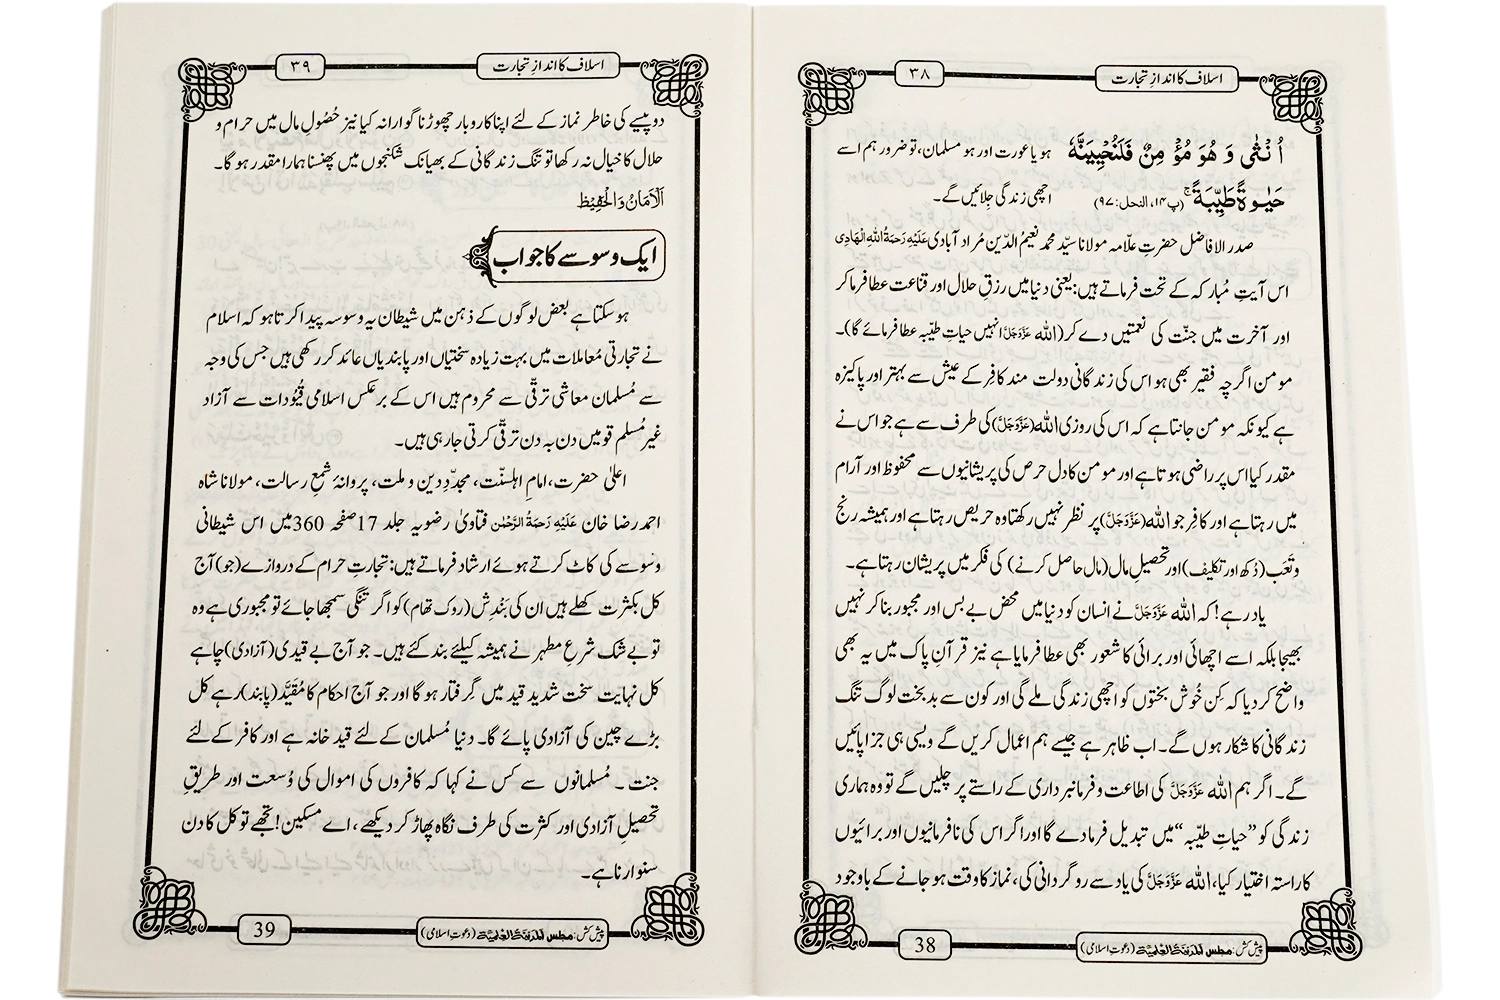 اسلاف کا اندازِ تجارت
۳۸
اُنْثٰى وَ هُوَ مُؤْمِنٌ فَلَنُحْيِيَنَّهٗ ہو یا عورت اور ہو مسلمان، تو ضرور ہم اسے
حَيٰوةً طَيِّبَةً ۚ (پ۱۴، النحل:۹۷) اچھی زندگی جِلائیں گے۔
صدر الافاضل حضرتِ علّامہ مولانا سیّد محمد نعیمُ الدّین مُراد آبادی عَلَیْہِ رَحمَۃُ اللہِ الْہَادِی
اس آیتِ مُبارکہ کے تحت فرماتے ہیں: یعنی دنیا میں رزقِ حلال اور قناعت عطا فرما کر
اور آخرت میں جنّت کی نعمتیں دے کر (اللہ عَزَّوَجَلَّ انہیں حیاتِ طیّبہ عطا فرمائے گا)۔
مومن اگرچہ فقیر بھی ہو اس کی زندگانی دولت مند کافِر کے عیش سے بہتر اور پاکیزہ
ہے کیونکہ مومن جانتا ہے کہ اس کی روزی اللہ (عَزَّوَجَلَّ) کی طرف سے ہے جو اس نے
مقدر کیا اس پر راضی ہوتا ہے اور مومن کا دل حرص کی پریشانیوں سے محفوظ اور آرام
میں رہتا ہے اور کافِر جو اللہ (عَزَّوَجَلَّ) پر نظر نہیں رکھتا وہ حریص رہتا ہے اور ہمیشہ رنج
و تَعَب (دُکھ اور تکلیف) اور تحصیلِ مال (مال حاصل کرنے) کی فکر میں پریشان رہتا ہے۔
یاد رہے! کہ اللہ عَزَّوَجَلَّ نے انسان کو دنیا میں محض بے بس اور مجبور بنا کر نہیں
بھیجا بلکہ اسے اچھائی اور برائی کا شعور بھی عطا فرمایا ہے نیز قرآنِ پاک میں یہ بھی
واضح کر دیا کہ کِن خُوش بختوں کو اچھی زندگی ملے گی اور کون سے بدبخت لوگ تنگ
زندگانی کا شکار ہوں گے۔ اب ظاہر ہے جیسے ہم اعمال کریں گے ویسی ہی جزا پائیں
گے۔ اگر ہم اللہ عَزَّوَجَلَّ کی اطاعت و فرمانبرداری کے راستے پر چلیں گے تو وہ ہماری
زندگی کو ”حیاتِ طیّبہ“ میں تبدیل فرما دے گا اور اگر اس کی نافرمانیوں اور برائیوں
کا راستہ اختیار کیا، اللہ عَزَّوَجَلَّ کی یاد سے روگردانی کی، نماز کا وقت ہو جانے کے باوجود
پیش کش: مجلس المدینۃ العلمیۃ (دعوتِ اسلامی)
38
اسلاف کا اندازِ تجارت
۳۹
دو پیسے کی خاطر نماز کے لئے اپنا کاروبار چھوڑنا گوارا نہ کیا نیز حُصُولِ مال میں حرام و
حلال کا خیال نہ رکھا تو تنگ زندگانی کے بھیانک شکنجوں میں پھنسنا ہمارا مقدر ہو گا۔
اَلْاَمَان وَالْحَفِیْظ
ایک وسوسے کا جواب
ہو سکتا ہے بعض لوگوں کے ذہن میں شیطان یہ وسوسہ پیدا کرتا ہو کہ اسلام
نے تجارتی مُعاملات میں بہت زیادہ سختیاں اور پابندیاں عائد کر رکھی ہیں جس کی وجہ
سے مُسلمان معاشی ترقّی سے محروم ہیں اس کے برعکس اسلامی قُیُودات سے آزاد
غیر مُسلم قومیں دن بہ دن ترقّی کرتی جا رہی ہیں۔
اعلیٰ حضرت، امامِ اہلسنّت، مجدِّدِ دین و ملت، پروانۂ شمعِ رسالت، مولانا شاہ
احمد رضا خان عَلَیْہِ رَحمَۃُ الرَّحْمٰن فتاویٰ رضویہ جلد 17 صفحہ 360 میں اس شیطانی
وَسوسے کی کاٹ کرتے ہوئے ارشاد فرماتے ہیں: تجارتِ حرام کے دروازے (جو) آج
کل بکثرت کھلے ہیں ان کی بَندِش (روک تھام) کو اگر تنگی سمجھا جائے تو مجبوری ہے وہ
تو بے شک شرعِ مطہر نے ہمیشہ کیلئے بند کئے ہیں۔ جو آج بے قیدی (آزادی) چاہے
کل نہایت سخت شدید قید میں گِرفتار ہو گا اور جو آج احکام کا مُقَیَّد (پابند) رہے کل
بڑے چین کی آزادی پائے گا۔ دنیا مُسلمان کے لئے قید خانہ ہے اور کافر کے لئے
جنت۔ مُسلمانوں سے کس نے کہا کہ کافروں کی اموال کی وُسعت اور طریقِ
تحصیلِ آزادی اور کثرت کی طرف نگاہ پھاڑ کر دیکھے، اے مسکین! تجھے تو کل کا دن
سنوارنا ہے۔
پیش کش: مجلس المدینۃ العلمیۃ (دعوتِ اسلامی)
39